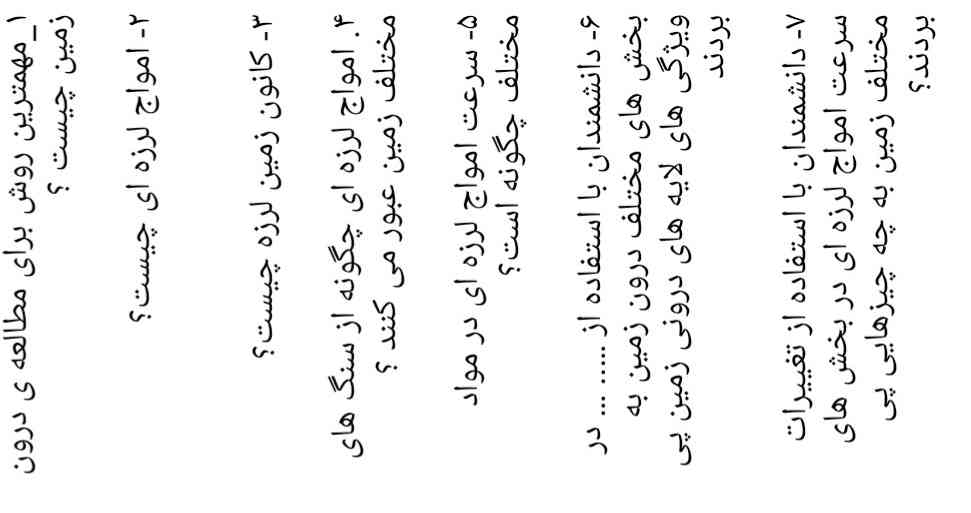 ۱_مهمترین روش برای مطالعه ی درون
زمین چیست ؟
۲- امواج لرزه ای چیست؟
۳- کانون زمین لرزه چیست؟
۴. امواج لرزه ای چگونه از سنگ های
مختلف زمین عبور می کنند ؟
۵- سرعت امواج لرزه ای در مواد
مختلف چگونه است؟
۶- دانشمندان با استفاده از ..... ... در
بخش های مختلف درون زمین به
ویژگی های لایه های درونی زمین پی
بردند
۷- دانشمندان با استفاده از تغییرات
سرعت امواج لرزه ای در بخش های
مختلف زمین به چه چیزهایی پی
بردند؟